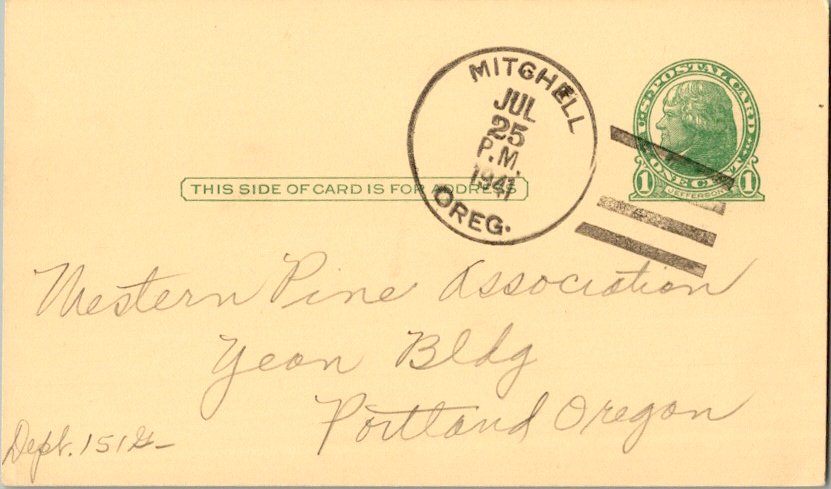 MITCHELL
JUL
25
P.M.
1941
OREG.
U.S. POSTAL CARD
ONE CENT
1 JEFFERSON 1
THIS SIDE OF CARD IS FOR ADDRESS
Western Pine Association
Yeon Bldg
Portland Oregon
Dept. 151G-